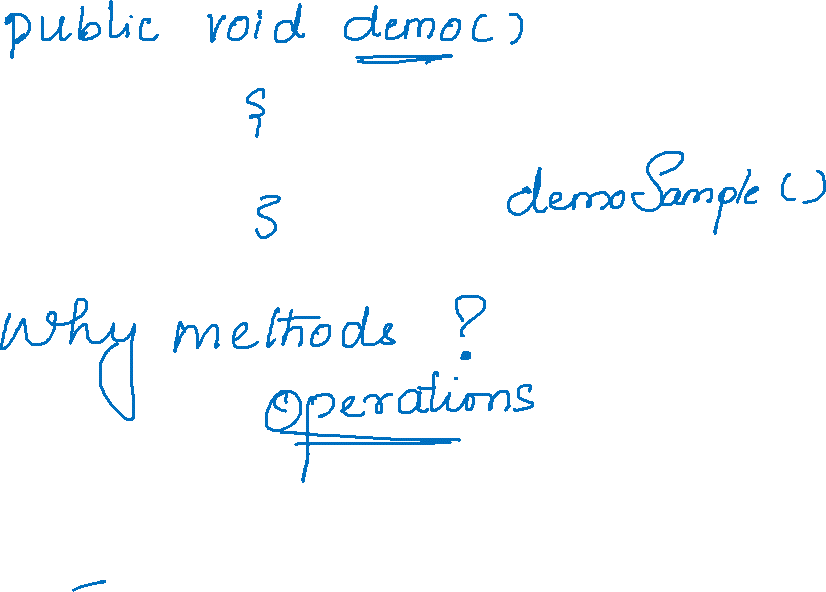 public void demo()
{
}
demoSample()
Why methods ?
Operations